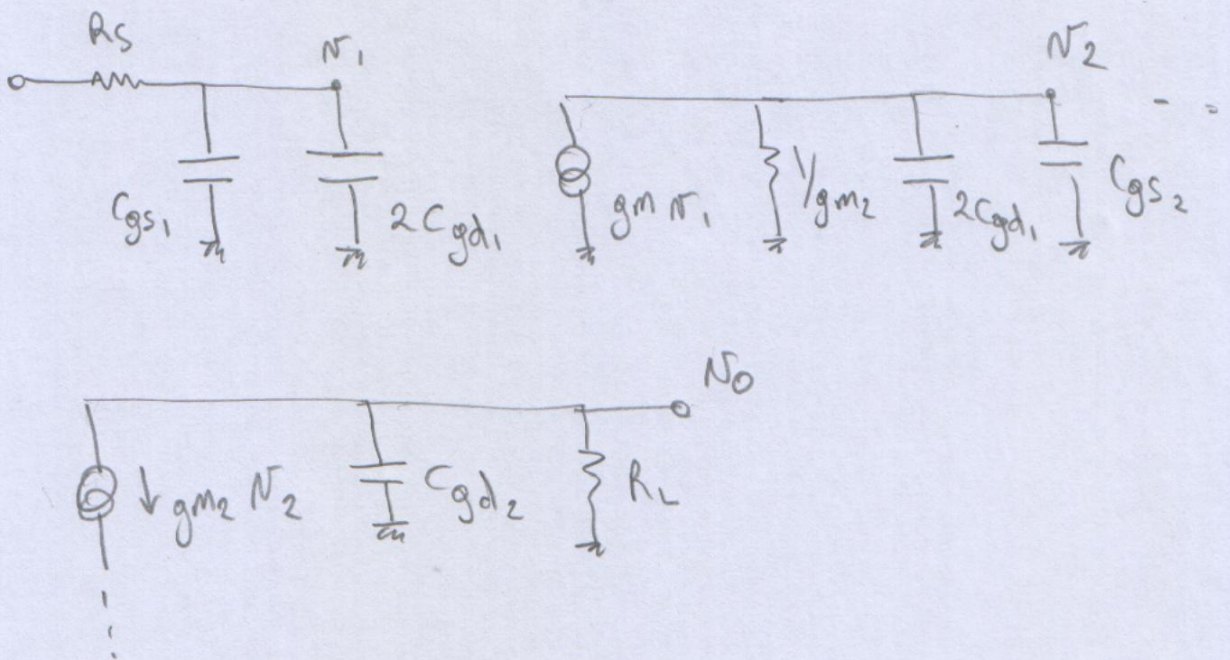 Rs
v₁
v₂
Cgs₁
2Cgd₁
gm v₁
1/gm₂
2Cgd₁
Cgs₂
v₀
↓ gm₂ v₂
Cgd₂
RL